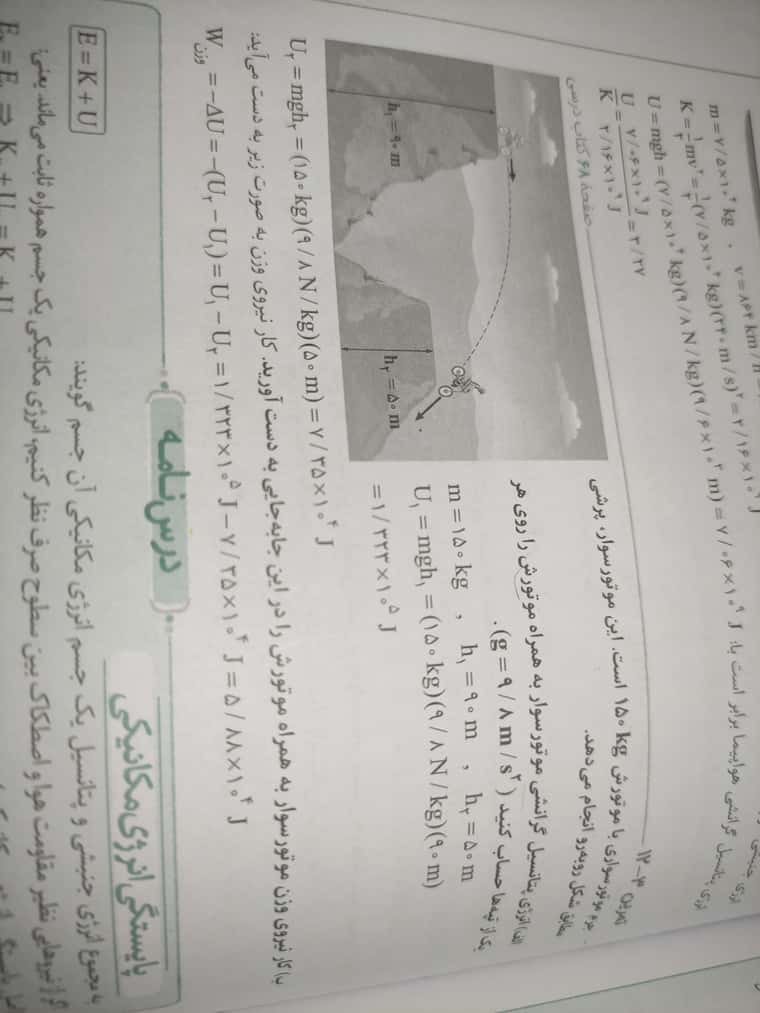 انرژی پتانسیل گرانشی هواپیما برابر است با:
m = ۷/۵×۱۰^۴ kg , v = ۸۶۴ km/h
K = ۱/۲ mv^۲ = ۱/۲ (۷/۵×۱۰^۴ kg)(۲۴۰ m/s)^۲ = ۲/۱۶×۱۰^۹ J
U = mgh = (۷/۵×۱۰^۴ kg)(۹/۸ N/kg)(۹/۶×۱۰^۳ m) = ۷/۰۶×۱۰^۹ J
U/K = ۷/۰۶×۱۰^۹ J / ۲/۱۶×۱۰^۹ J = ۳/۲۷
تمرین ۳-۱۲
صفحهٔ ۶۸ کتاب درسی
جرم موتورسواری با موتورش ۱۵۰ kg است. این موتورسوار، پرشی
مطابق شکل روبه‌رو انجام می‌دهد.
الف) انرژی پتانسیل گرانشی موتورسوار به همراه موتورش را روی هر
یک از تپه‌ها حساب کنید (g = ۹/۸ m/s^۲).
h₁ = ۹۰ m
h₂ = ۵۰ m
m = ۱۵۰ kg , h₁ = ۹۰ m , h₂ = ۵۰ m
U₁ = mgh₁ = (۱۵۰ kg)(۹/۸ N/kg)(۹۰ m)
= ۱/۳۲۳×۱۰^۵ J
U₂ = mgh₂ = (۱۵۰ kg)(۹/۸ N/kg)(۵۰ m) = ۷/۳۵×۱۰^۴ J
ب) کار نیروی وزن موتورسوار به همراه موتورش را در این جابه‌جایی به دست آورید. کار نیروی وزن به صورت زیر به دست می‌آید:
W وزن = −ΔU = −(U₂ − U₁) = U₁ − U₂ = ۱/۳۲۳×۱۰^۵ J − ۷/۳۵×۱۰^۴ J = ۵/۸۸×۱۰^۴ J
درس‌نامه
پایستگی انرژی مکانیکی
به مجموع انرژی جنبشی و پتانسیل یک جسم انرژی مکانیکی آن جسم گویند:
E = K + U
گر از نیروهایی نظیر مقاومت هوا و اصطکاک بین سطوح صرف نظر کنیم، انرژی مکانیکی یک جسم همواره ثابت می‌ماند یعنی: